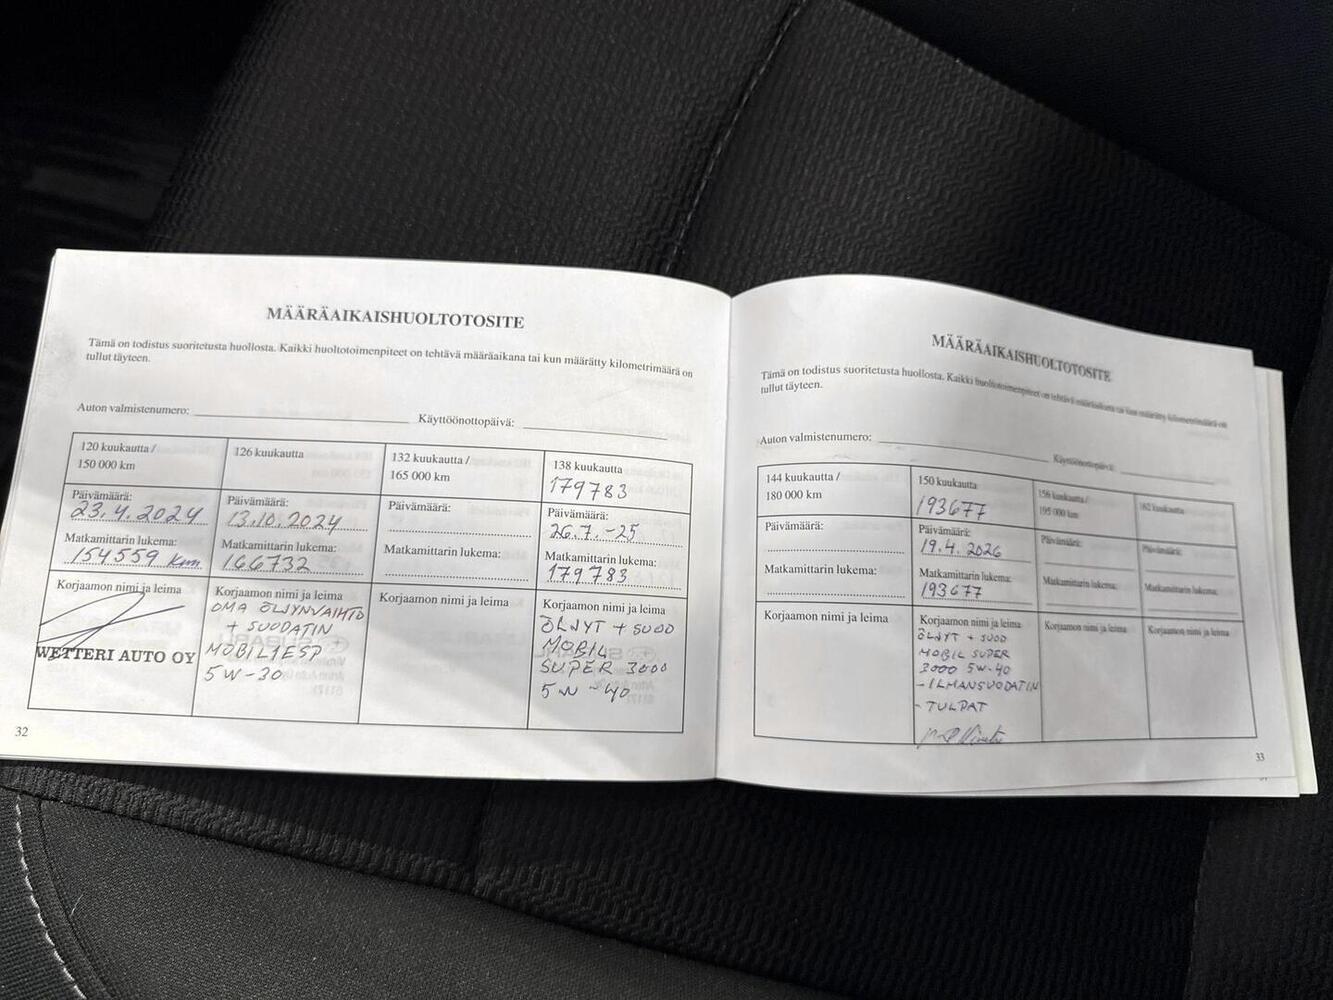 MÄÄRÄAIKAISHUOLTOTOSITE
Tämä on todistus suoritetusta huollosta. Kaikki huoltotoimenpiteet on tehtävä määräaikana tai kun määrätty kilometrimäärä on
tullut täyteen.
Auton valmistenumero:
Käyttöönottopäivä:
120 kuukautta /
150 000 km
Päivämäärä:
23.4.2024
Matkamittarin lukema:
154559 km
Korjaamon nimi ja leima
WETTERI AUTO OY
126 kuukautta
Päivämäärä:
13.10.2024
Matkamittarin lukema:
166732
Korjaamon nimi ja leima
OMA ÖLJYNVAIHTO
+ SUODATIN
MOBIL1ESP
5W-30
132 kuukautta /
165 000 km
Päivämäärä:
Matkamittarin lukema:
Korjaamon nimi ja leima
138 kuukautta
179783
Päivämäärä:
26.7.-25
Matkamittarin lukema:
179783
Korjaamon nimi ja leima
ÖLJYT + SUOD
MOBIL
SUPER 3000
5W-40
32
MÄÄRÄAIKAISHUOLTOTOSITE
Tämä on todistus suoritetusta huollosta. Kaikki huoltotoimenpiteet on tehtävä määräaikana tai kun määrätty kilometrimäärä on
tullut täyteen.
Auton valmistenumero:
Käyttöönottopäivä:
144 kuukautta /
180 000 km
Päivämäärä:
Matkamittarin lukema:
Korjaamon nimi ja leima
150 kuukautta
193677
Päivämäärä:
19.4.2026
Matkamittarin lukema:
193677
Korjaamon nimi ja leima
ÖLJYT + SUOD
MOBIL SUPER
3000 5W-40
-ILMANSUODATIN
- TULPAT
156 kuukautta /
195 000 km
Päivämäärä:
Matkamittarin lukema:
Korjaamon nimi ja leima
162 kuukautta
Päivämäärä:
Matkamittarin lukema:
Korjaamon nimi ja leima
33